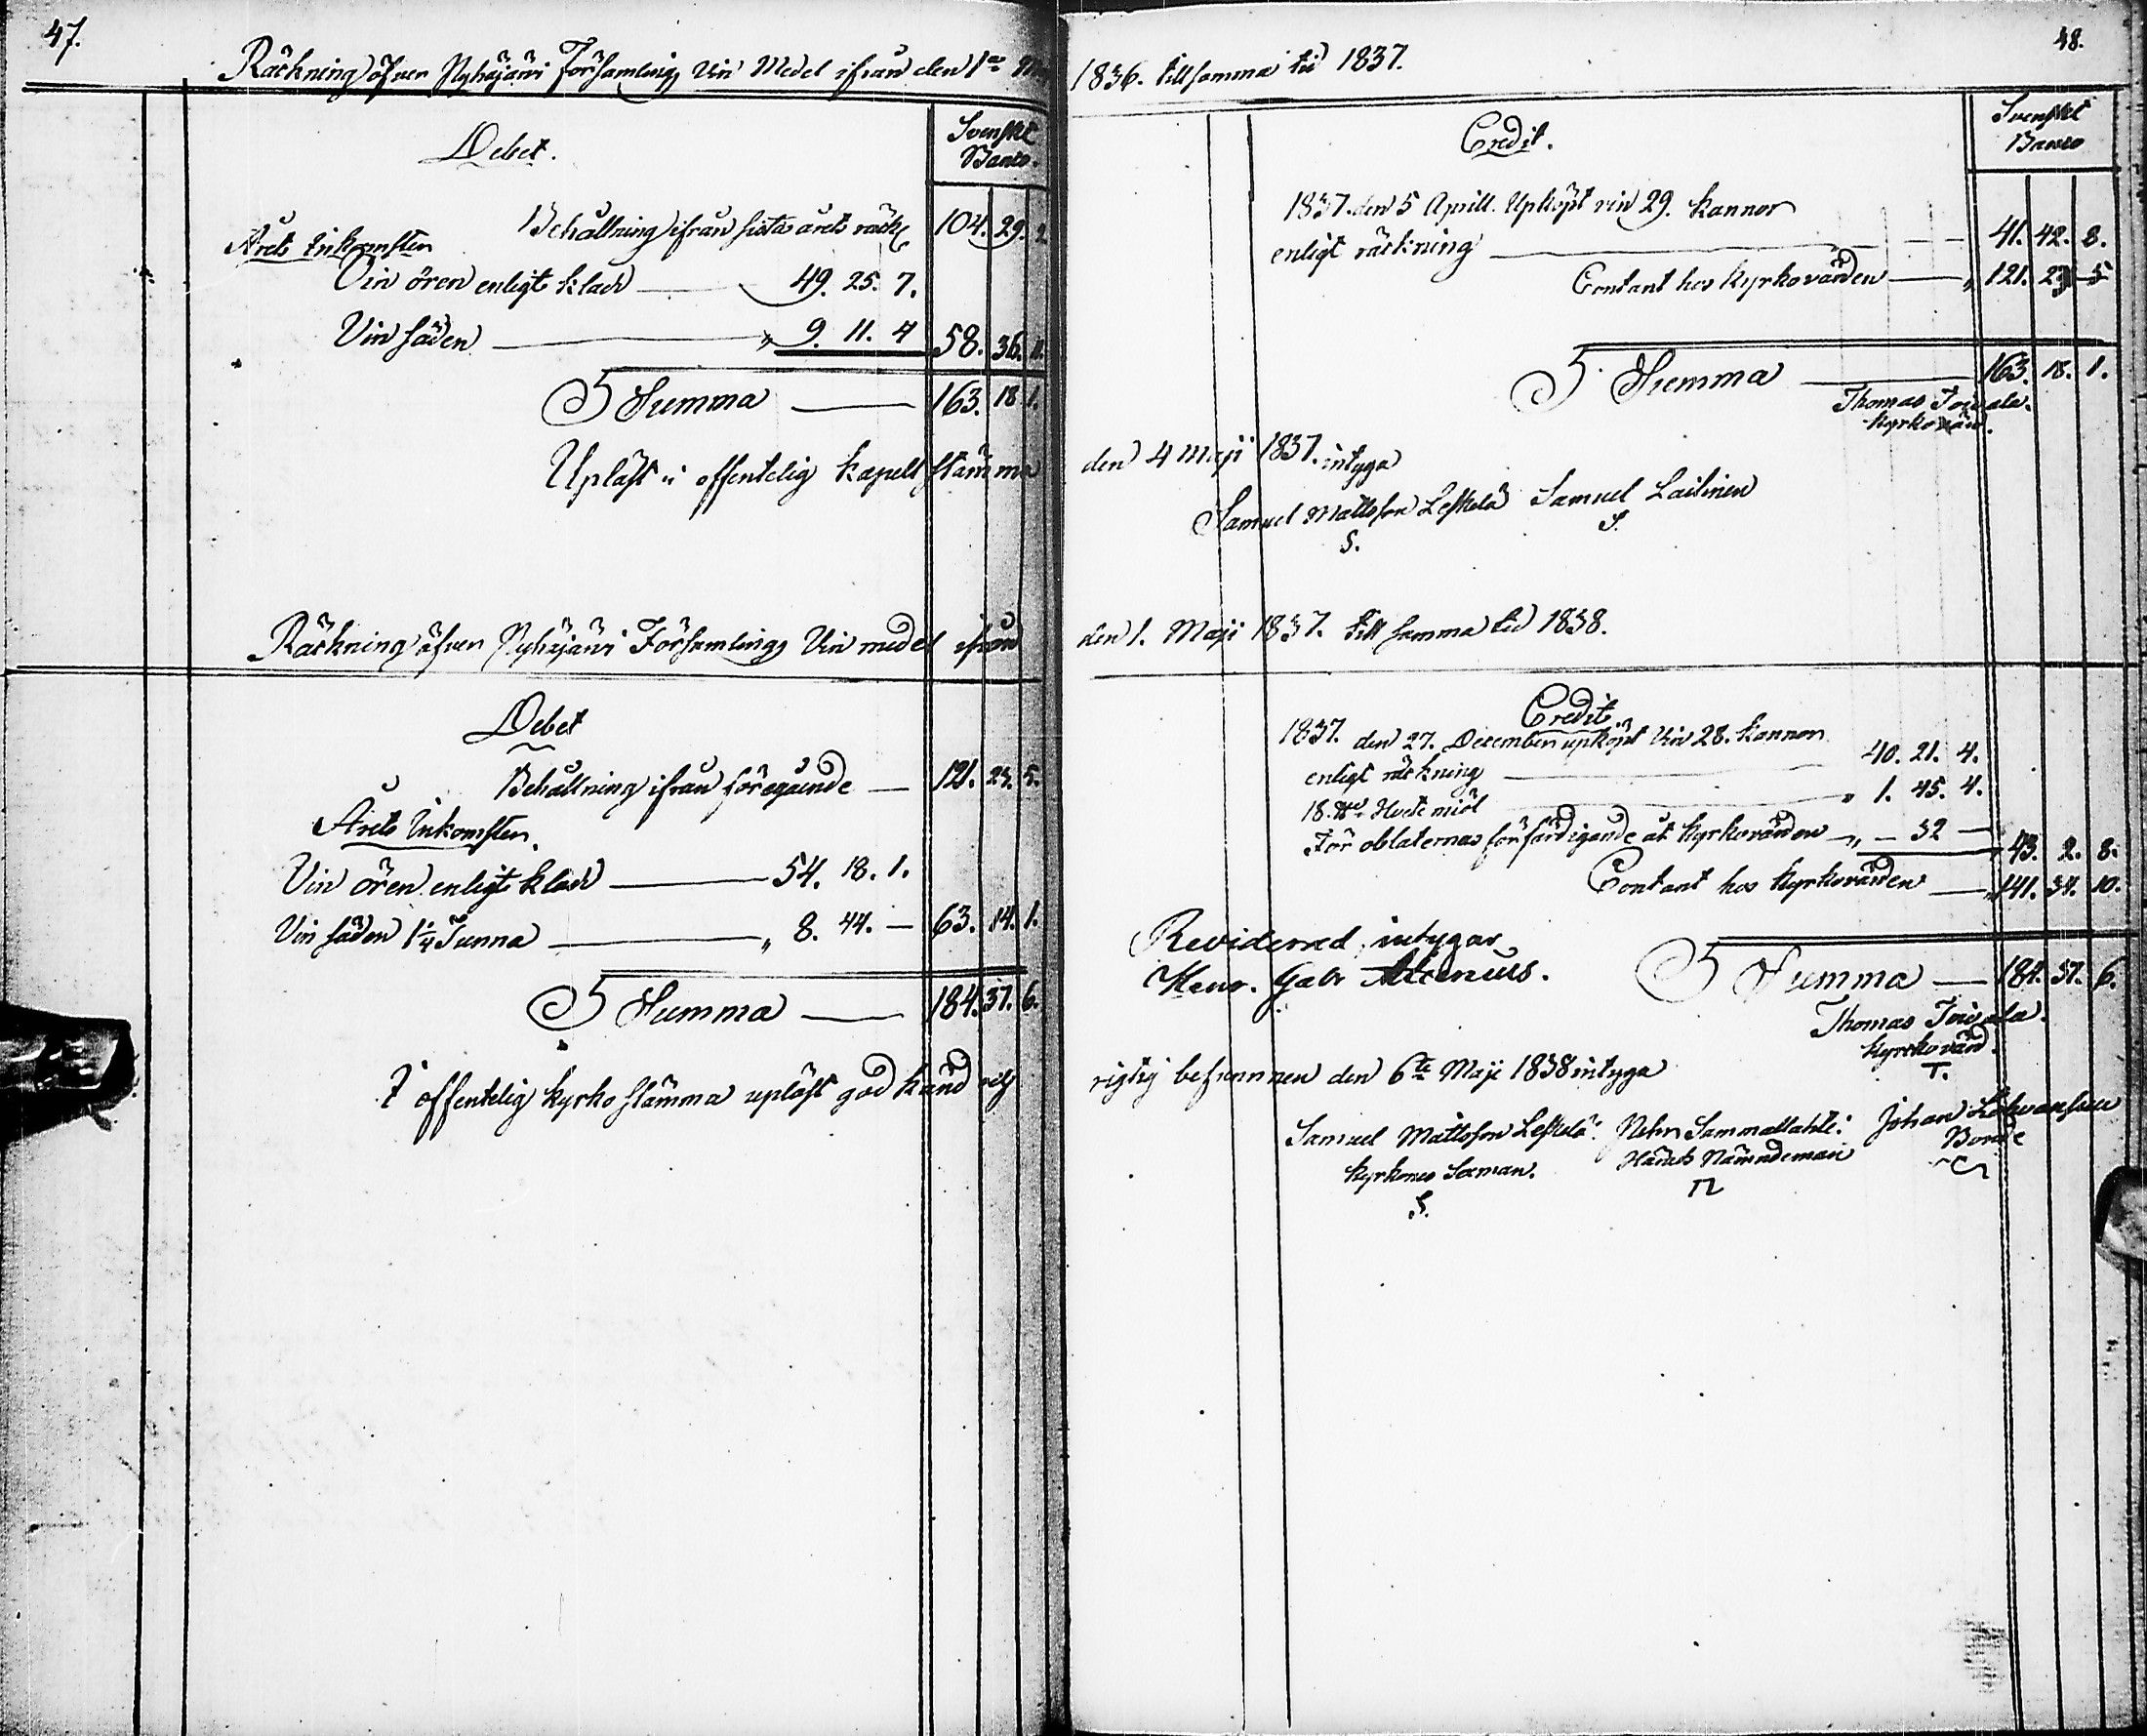 47.
Räkning öfver Pyhäjärvi Församlings Vin Medel ifrån den 1a
Debet.
Svenskt Banco.
Behållning ifrån sista årets räk 104. 29. 2
Årets Inkomsten
Vin ören enligt klad 49. 25. 7.
Vin säden " 9. 11. 4 58. 36. 11.
Summa 163. 18. 1.
Upläst i offentelig kapell stämma
Räkning öfver Pyhäjärvi Församlings Vin medel ifrån
Debet
Behållning ifrån föregående 121. 23. 5.
Årets Inkomsten.
Vin ören enligt klad 54. 18. 1.
Vin säden 1 1/4 Tunna " 8. 44. — 63. 14. 1.
Summa 184. 37. 6.
I offentelig kyrko stämma upläst god känd och
48.
1836. till samma tid 1837.
Credit.
Svenskt Banco
1837. den 5 Aprill. Upköpt vin 29. kannor
enligt räkning 41. 42. 8.
Contant hos kyrkovärden " 121. 23 5
Summa 163. 18. 1.
Thomas Toivala.
kyrkovärd.
den 4 Maji 1837. intyga
Samuel Mattsson Leskelä Samuel Laitinen
S. S.
den 1. Maji 1837. till samma tid 1838.
Credit.
1837. den 27. December upköpt Vin 28. kannor
enligt räkning 40. 21. 4.
18. Hvete miöl " 1. 45. 4.
För oblaternas förfärdigande åt kyrkovärden " — 32 — 43. 2. 8.
Contant hos kyrkovärden " 141. 34. 10.
Reviderad, intygar
Henr. Gabr
Summa 184. 37. 6.
Thomas Toivala.
kyrkovärd.
T.
rigtig befunnen den 6te Maji 1838 intyga
Samuel Mattsson Leskelä. Sammallahti. Johan
kyrkones Sexman. Härads Nämndeman Bonde
S.